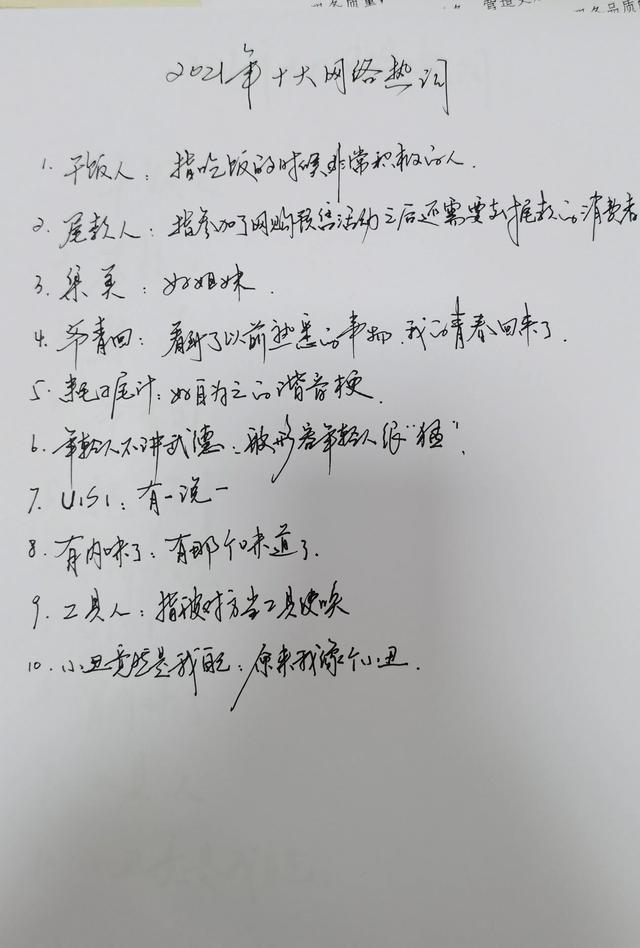 2021年十大网络热词
1. 干饭人：指吃饭的时候非常积极的人.
2. 尾款人：指参加了网购预售活动之后还需要支付尾款的消费者
3. 集美：好姐妹.
4. 爷青回：看到了以前熟悉的事物，我的青春回来了.
5. 耗子尾汁：好自为之的谐音梗.
6. 年轻人不讲武德：形容年轻人很"猛".
7. U1S1：有一说一
8. 有内味了：有那个味道了.
9. 工具人：指被对方当工具使唤
10. 小丑竟然是我自己：原来我像个小丑.